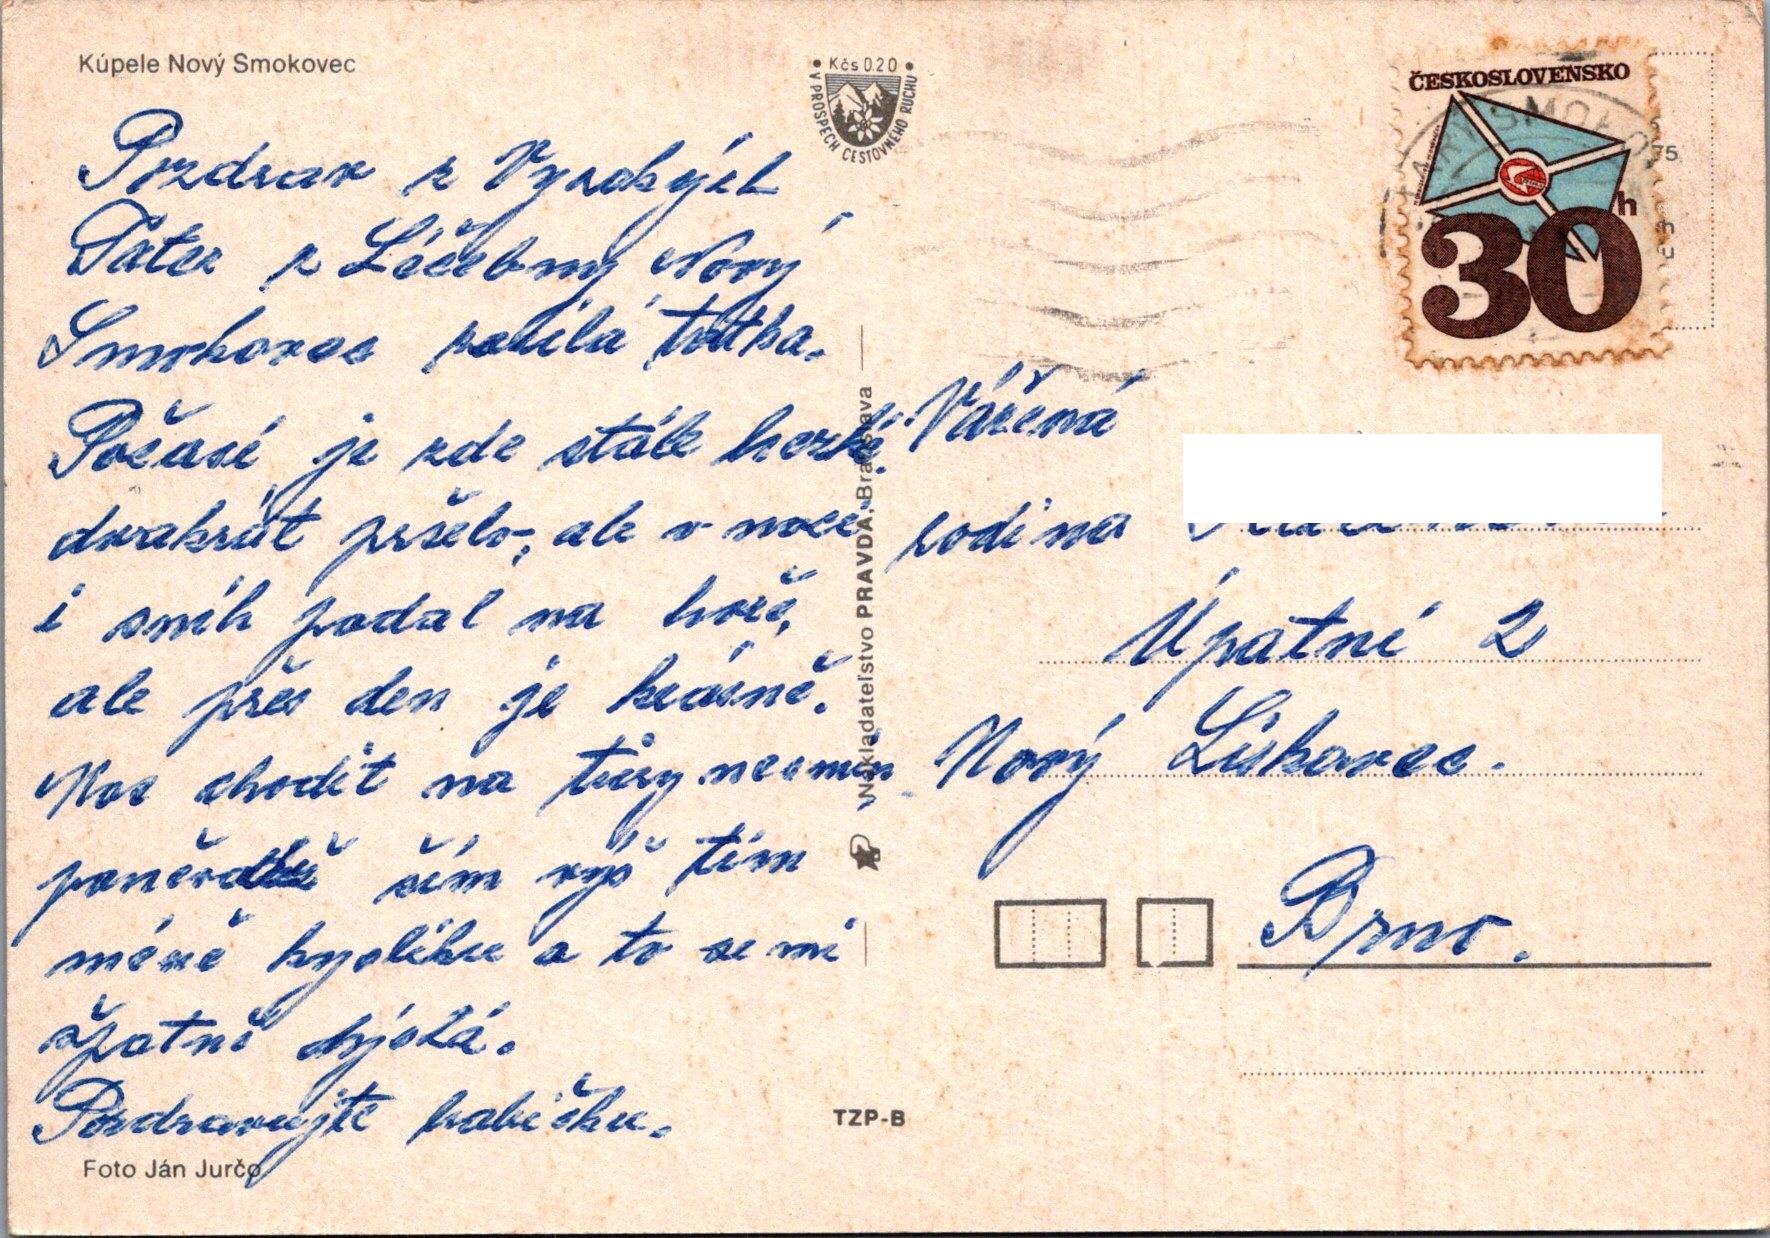 Kúpele Nový Smokovec
• Kčs 0.20 •
V PROSPECH CESTOVNÉHO RUCHU
ČESKOSLOVENSKO
30h
75
Pozdrav z Vysokých
Tater z Léčebny Nový
Smokovec posílá taťka.
Počasí je zde stále hezké,
dvakrát pršelo, ale v noci
i sníh padal na hoře,
ale přes den je krásně.
Moc chodit na túry nesmím
poněvadž čím výš tím
méně kyslíku a to se mi
špatně dýchá.
Pozdravujte babičku.
Foto Ján Jurčo
Nakladateľstvo PRAVDA, Bratislava
TZP-B
Vážená
rodina
Úpatní 2
Nový Lískovec.
Brno.